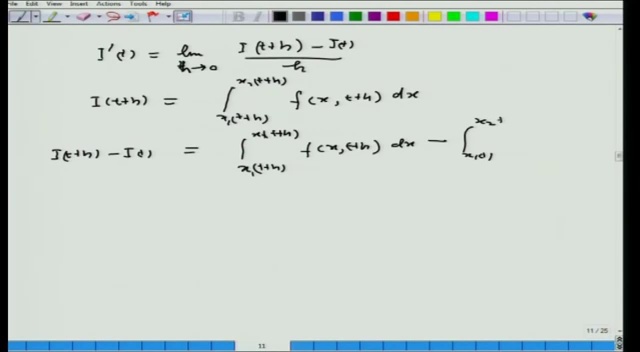 File Edit View Insert Actions Tools Help
I'(t) = lim h→0 (I(t+h) − I(t)) / h
I(t+h) = ∫_{x₁(t+h)}^{x₂(t+h)} f(x, t+h) dx
I(t+h) − I(t) = ∫_{x₁(t+h)}^{x₂(t+h)} f(x, t+h) dx − ∫_{x₁(t)}^{x₂ t
11 / 25
11